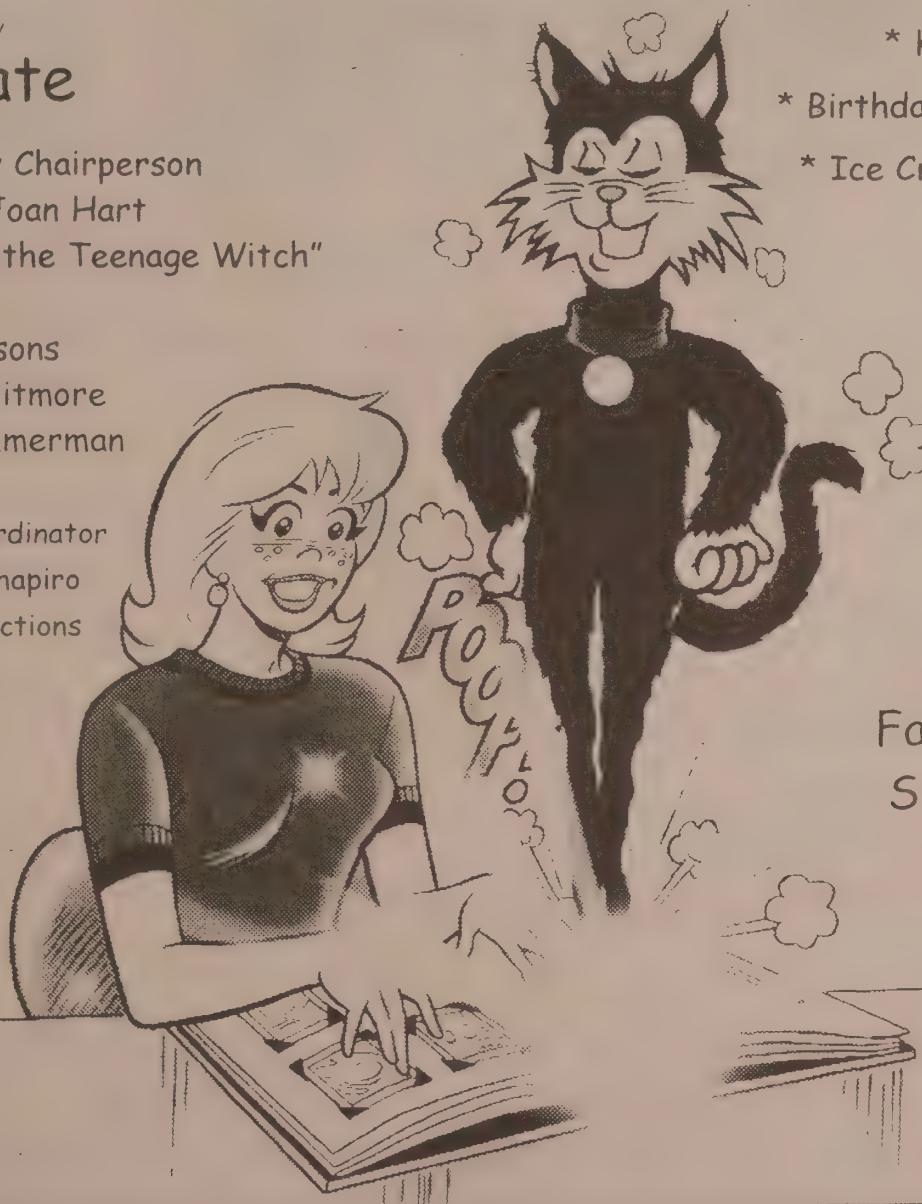 ate
Chairperson
Joan Hart
the Teenage Witch"
sons
itmore
merman
rdinator
hapiro
ctions
* Birthda
* Ice Cr
POOF!
Fa
S